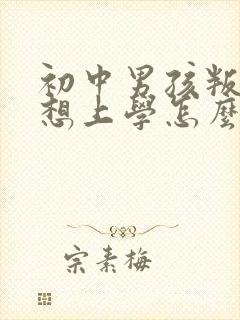 初中男孩叛
想上學怎麼
宗素梅